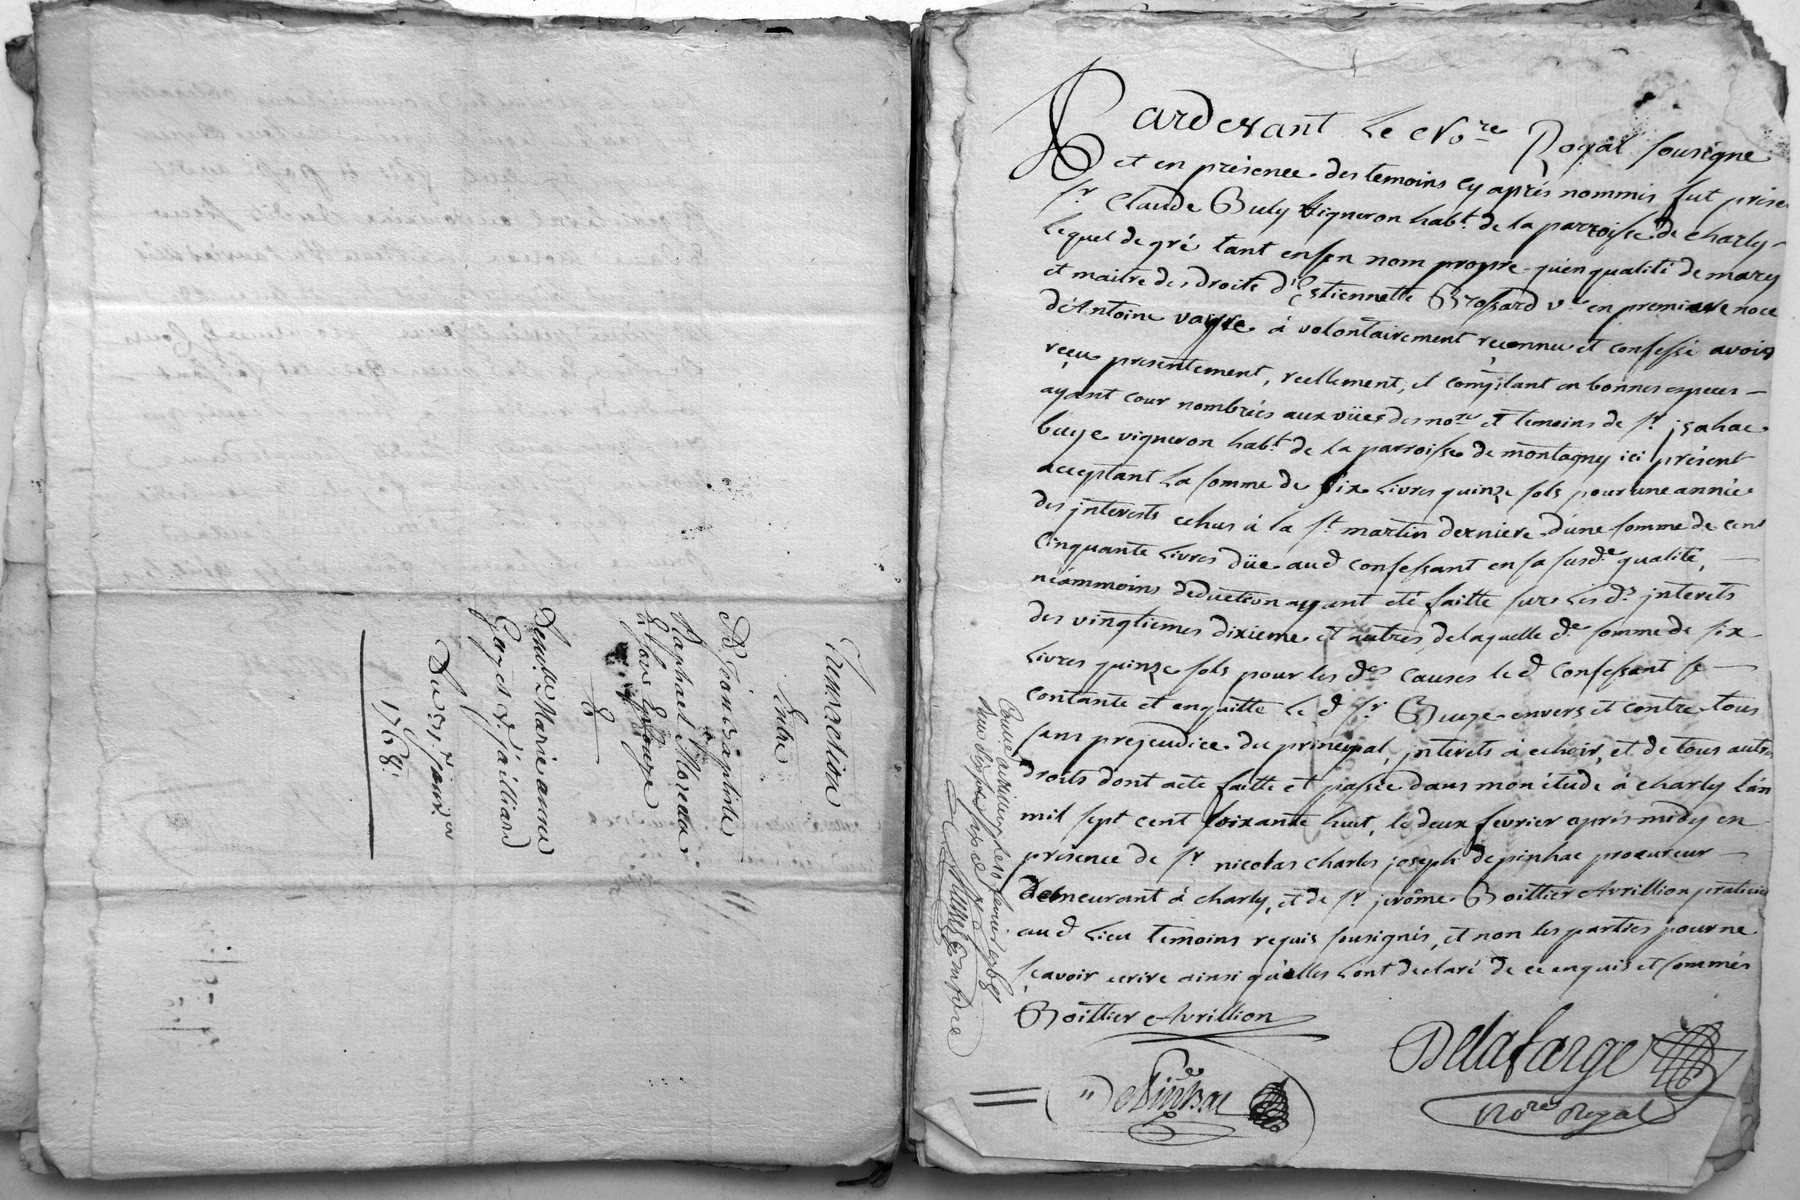 Transaction
Entre
Sr Jean Baptiste
Raphael Moreau
&
Demlle Marie anne
Gayet Vve Gailliard
Du 31e Janvier
1768
Pardevant Le No.re Royal sousigné
et en présence des temoins cy après nommés fut présent
sr Claude Buly vigneron habt. de la parroisse de charly
lequel de gré tant en son nom propre qu'en qualité de mary
et maitre des droits d'Estiennette Brossard ve en premiere noce
d'Antoine vaysse à volontairement reconnu et confessé avoir
reçu presentement, reellement, et comptant en bonnes especes
ayant cour nombrées aux vües des nore et temoins de sr jsahac
buye vigneron habt. de la parroisse de montagny ici présent
acceptant La somme de six Livres quinze sols pour une année
des jnterests echus à la st martin derniere d'une somme de cent
Cinquante Livres düe aud confessant en sa susde qualité,
néammoins deduction ayant eté faitte sur les ds jnterets
des vingtiemes dixieme et autres, de laquelle de somme de six
Livres quinze sols pour les des causes le d confessant se
contante et en quitte le d sr Buye envers et contre tous
sans prejeudice du principal, jnterets à echoir, et de tous autres
droits dont acte faitte et passée dans mon étude à charly L'an
mil sept cent soixante huit, le deux fevrier après midy en
présence de sr nicolas charles joseph depinhac procureur
Demeurant à charly, et de sr jerôme Boittier Avrillion praticien
au d Lieu temoins requis sousignés, et non les parties pour ne
sçavoir ecrire ainsi qu'elles ont declaré de ce enquis et sommés
Boittier Avrillion
Delafarge
DePinhac
No.re Royal